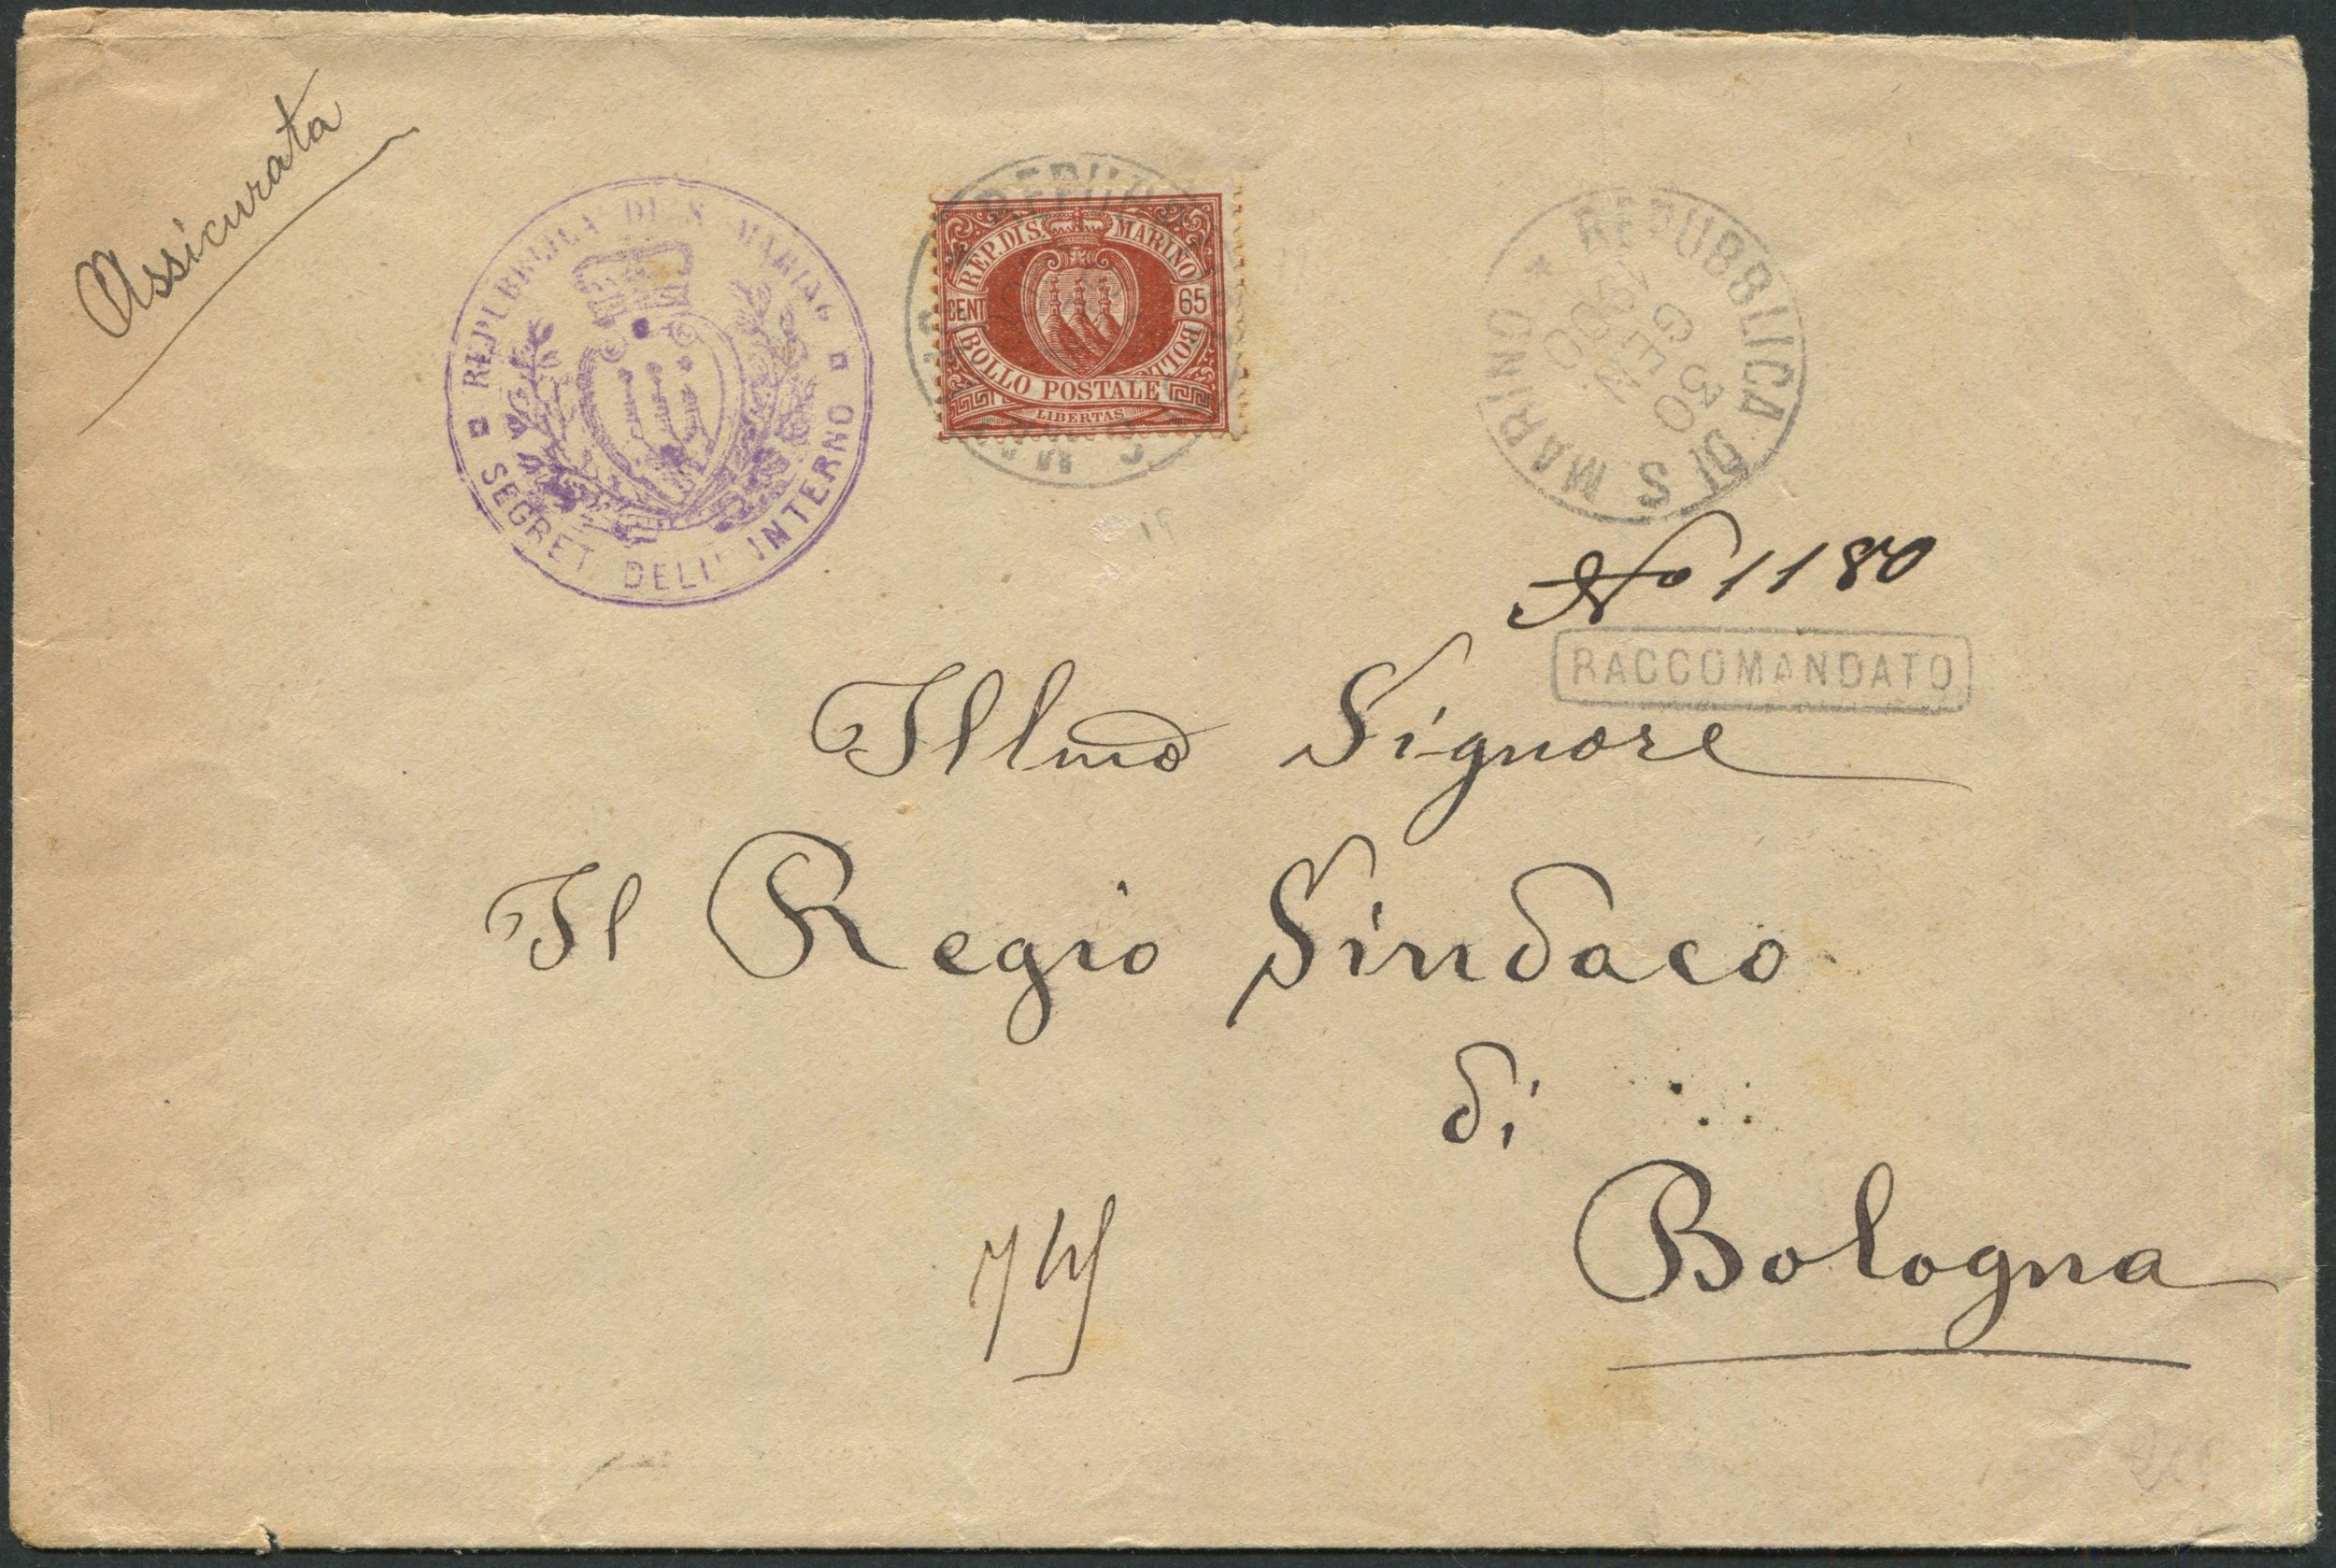 Assicurata
REPUBBLICA DI S. MARINO
SEGRET DELL' INTERNO
REP. DI S. MARINO
CENT 65
BOLLO POSTALE BOLLO
LIBERTAS
REPUBBLICA DI S MARINO
30 GEN 1900
No 1180
RACCOMANDATO
Illmo Signore
Il Regio Sindaco
di
Bologna